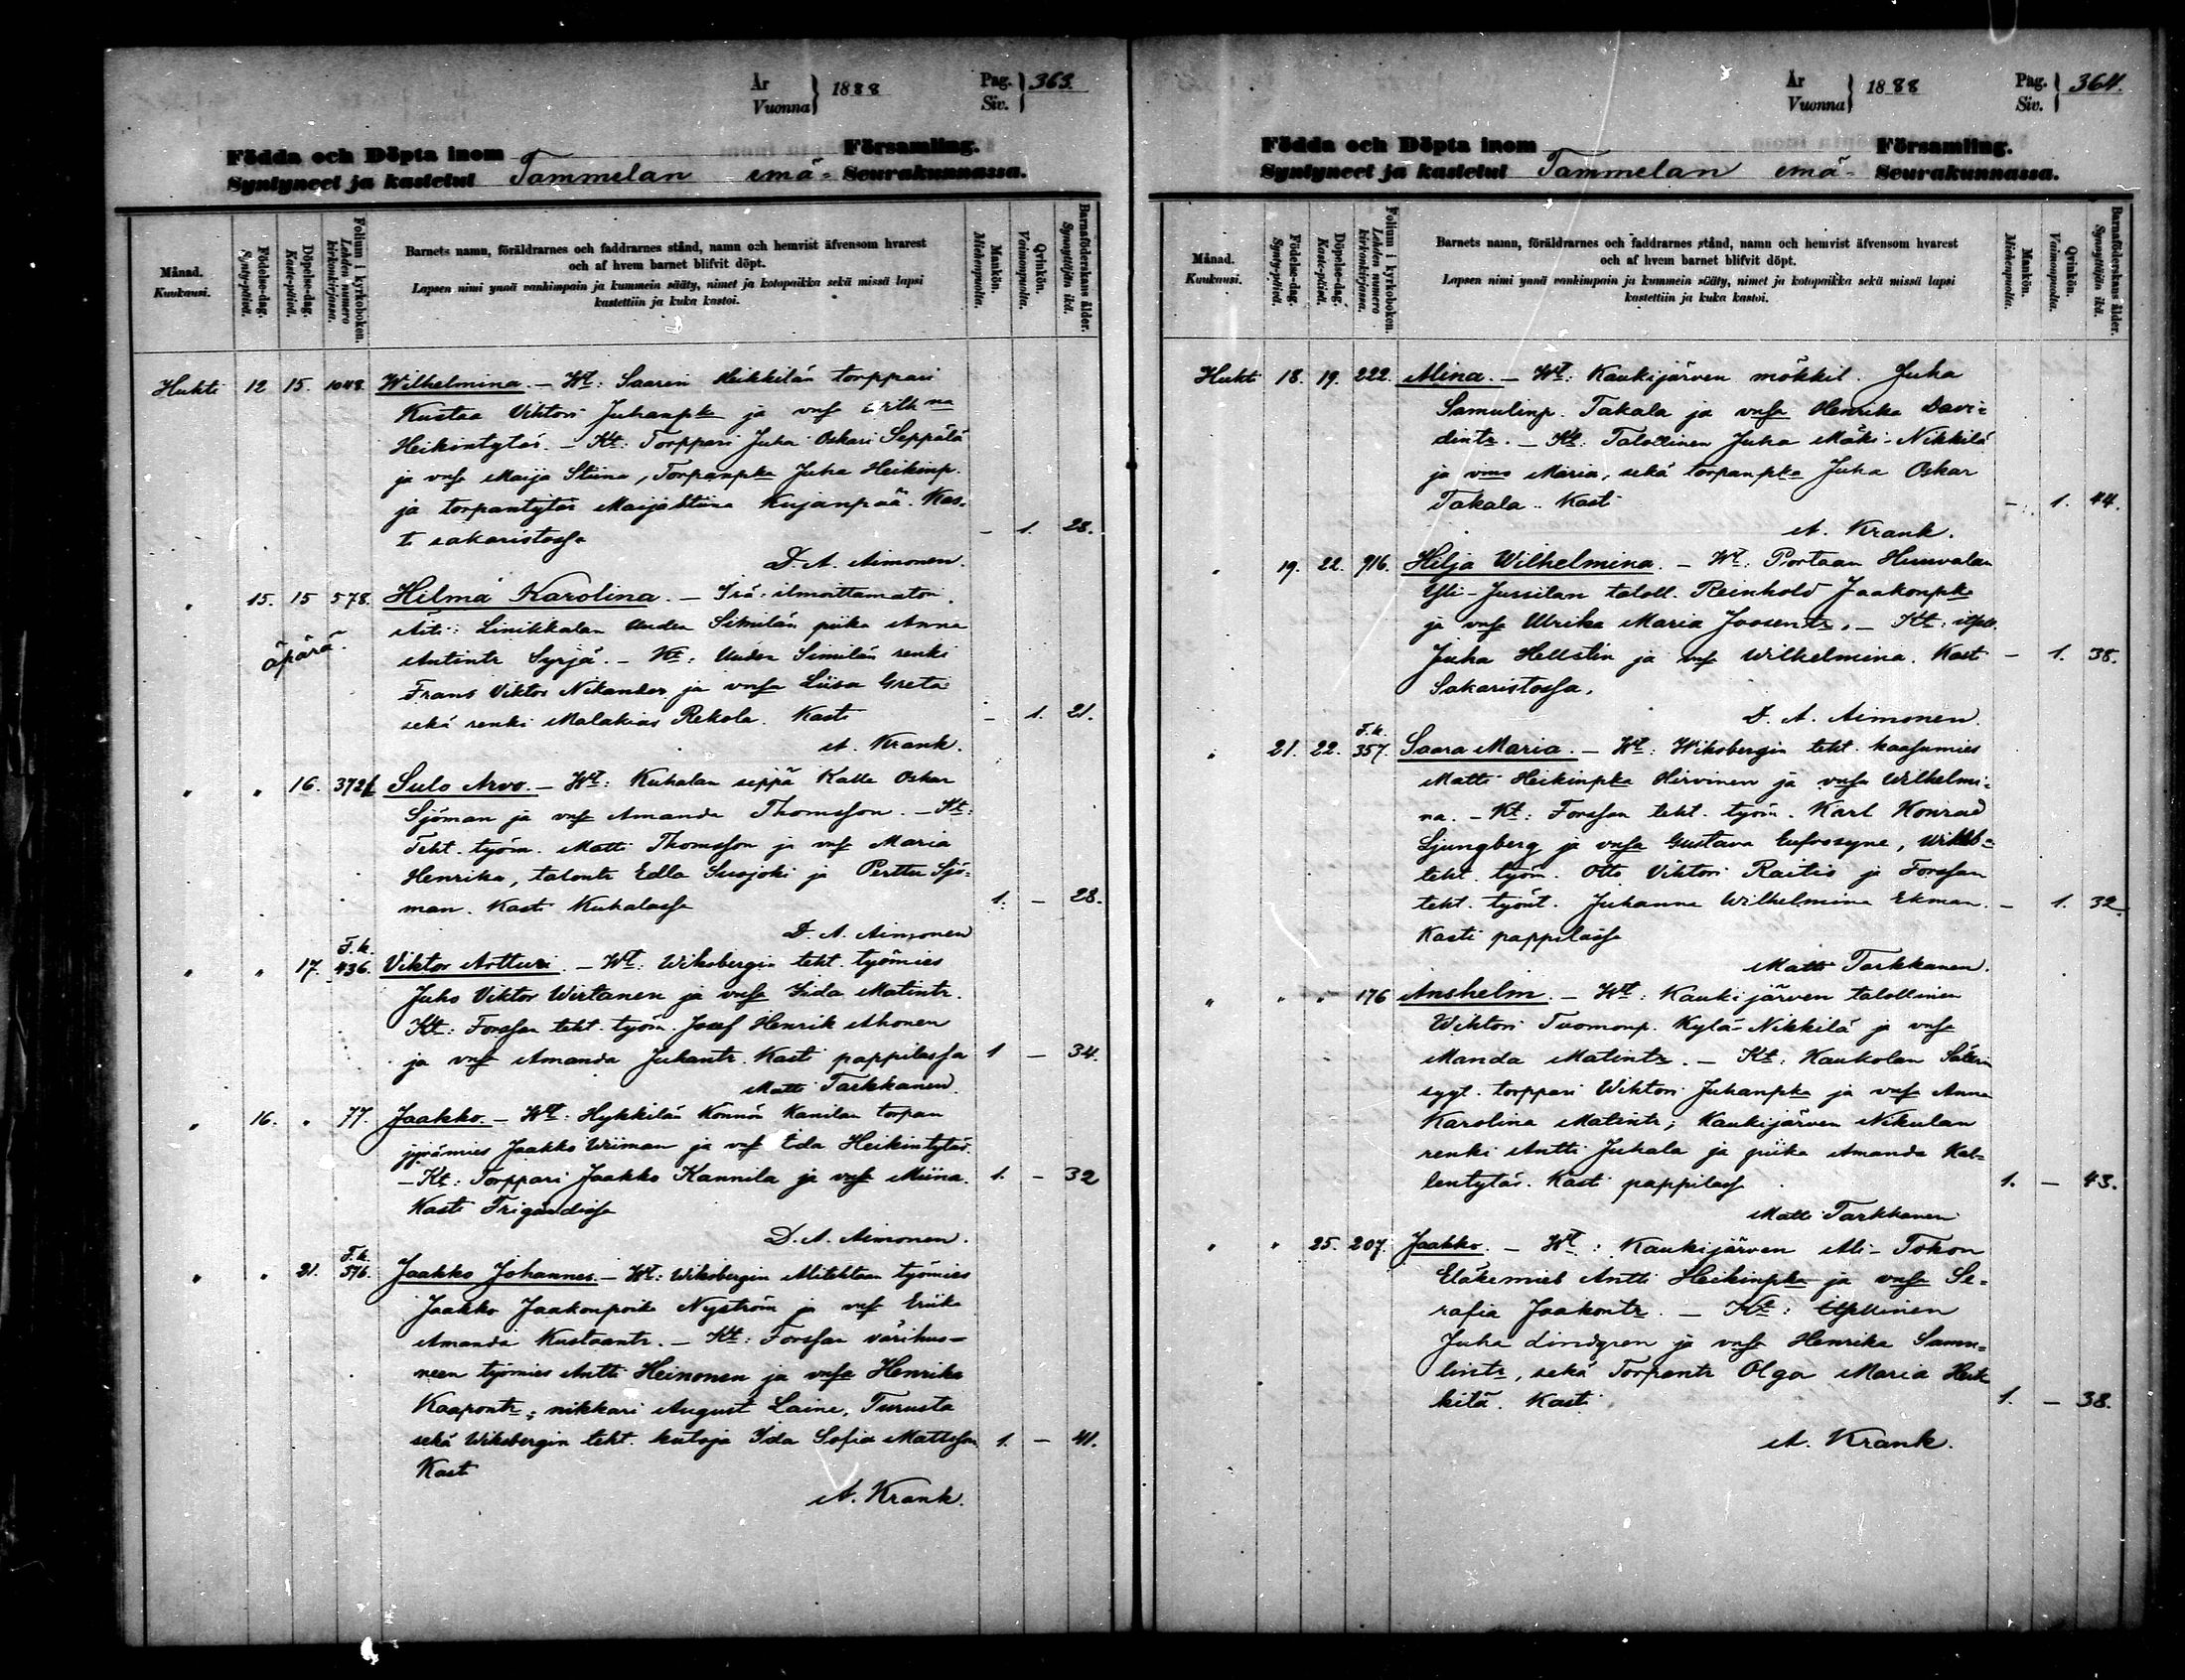 År
Vuonna } 1888
Pag.
Siv. } 363.
Födda och Döpta inom Församling.
Syntyneet ja kastetut Tammelan emä- Seurakunnassa.
Månad.
Kuukausi.
Födelse-dag.
Synty-päivä.
Döpelse-dag.
Kaste-päivä.
Folium i kyrkoboken.
Lehden numero kirkonkirjassa.
Barnets namn, föräldrarnes och faddrarnes stånd, namn och hemvist äfvensom hvarest
och af hvem barnet blifvit döpt.
Lapsen nimi ynnä vanhimpain ja kummein sääty, nimet ja kotopaikka sekä missä lapsi
kastettiin ja kuka kastoi.
Mankön.
Miehenpuolta.
Qvinkön.
Vaimonpuolta.
Barnaföderskans ålder.
Synnyttäjän ikä.
Huhti 12 15. 1048. Wilhelmina. – Wt: Saaren Heikkilän torppari
Kustaa Viktori Juhanpka ja vmsa
Heikintytär. – Kt: Torppari Juha Oskari Seppälä
ja vmsa Maija Stiina, Torpanpka Juha Heikinp.
ja torpantytär Maija Stiina Kujanpää. Kas-
ti sakaristossa – 1. 28.
D. A. Aimonen.
" 15. 15 578. Hilma Karolina. – Isä: ilmoittamaton.
äpärä. Äiti: Linikkalan Uuden Similän piika Anna
Antintr Syrjä. – Kt: Uuden Similän renki
Frans Viktor Nikander ja vmsa Liisa Greta
sekä renki Malakias Rekola. Kasti – 1. 21.
A. Krank.
" " 16. 372½ Sulo Arvo. – Wt: Kuhalan seppä Kalle Oskar
Sjöman ja vmsa Amanda Thomsson. – Kt:
Teht. työm. Matti Thomsson ja vmsa Maria
Henrika, talontr Edla Suojoki ja Perttu Sjö-
man. Kasti Kuhalassa 1. – 28.
D. A. Aimonen
" " 17. F.k. 436. Viktor Artturi. – Wt: Wiksbergin teht. työmies
Juho Viktor Wirtanen ja vmsa Iida Matintr.
Kt: Forssan teht. työm. Josef Henrik Ahonen
ja vmsa Amanda Juhantr. Kasti pappilassa 1 – 34.
Matti Tarkkanen.
" 16. " 77. Jaakko. – Wt: Hykkilän Könnön Kanilan torpan
Jaakko Wiiman ja vmsa Eda Heikintytär.
– Kt: Torppari Jaakko Kannila ja vmsa Miina. 1. – 32
Kasti
D. A. Aimonen.
" " 21. F.k. 576. Jaakko Johannes. – Wt: Wiksbergin työmies
Jaakko Jaakonpoika Nyström ja vmsa Eriika
Amanda Kustaantr. – Kt: Forssan värihuo-
neen työmies Antti Heinonen ja vmsa Henrika
Kaapontr; nikkari August Laine, Turusta
sekä Wiksbergin teht. kutoja Ida Sofia Mattsson 1. – 41.
Kasti
A. Krank.
År
Vuonna } 1888
Pag.
Siv. } 364.
Födda och Döpta inom Församling.
Syntyneet ja kastetut Tammelan emä- Seurakunnassa.
Månad.
Kuukausi.
Födelse-dag.
Synty-päivä.
Döpelse-dag.
Kaste-päivä.
Folium i kyrkoboken.
Lehden numero kirkonkirjassa.
Barnets namn, föräldrarnes och faddrarnes stånd, namn och hemvist äfvensom hvarest
och af hvem barnet blifvit döpt.
Lapsen nimi ynnä vanhimpain ja kummein sääty, nimet ja kotopaikka sekä missä lapsi
kastettiin ja kuka kastoi.
Mankön.
Miehenpuolta.
Qvinkön.
Vaimonpuolta.
Barnaföderskans ålder.
Synnyttäjän ikä.
Huhti 18. 19. 222. Mina. – Wt: Kaukijärven mökkil. Juha
Samulinp. Takala ja vmsa Henrika Davi-
dintr. – Kt: Talollinen Juha Mäki-Nikkilä
ja vmo Maria, sekä torpanpka Juha Oskar
Takala. Kasti – 1. 44.
A. Krank.
" 19. 22. 916. Hilja Wilhelmina. – Wt: Portaan Hunvalan
Yli-Jussilan taloll. Reinhold Jaakonpka
ja vmsa Ulrika Maria Joosentr. – Kt: itsell.
Juha Hellstin ja vmsa Wilhelmina. Kasti – 1. 38.
Sakaristossa.
D. A. Aimonen.
" 21. 22. F.k. 357. Saara Maria. – Wt: Wiksbergin teht. kaasumies
Matti Heikinpka Hirvinen ja vmsa Wilhelmi-
na. – Kt: Forssan teht. työm. Karl Konrad
Ljungberg ja vmsa Gustava Eufrosyne, Wiksb.
teht. työm. Otto Viktori Raitio ja Forssan
teht. työnt. Juhanna Wilhelmina Ekman. – 1. 32.
Kasti pappilassa
Matti Tarkkanen.
" " " 176 Anshelm. – Wt: Kaukijärven talollinen
Wiktori Tuomonp. Kylä-Nikkilä ja vmsa
Manda Matintr. – Kt: Kaukolan Säteri
sygt. torppari Wiktori Juhanpka ja vmsa Anna
Karolina Matintr; Kaukijärven Nikulan
renki Antti Juhala ja piika Amanda Kal-
lentytär. Kasti pappilassa 1. – 43.
Matti Tarkkanen
" " 25. 207. Jaakko. – Wt: Kaukijärven Ali-Tokon
Eläkemies Antti Heikinpka ja vmsa Se-
rafia Jaakontr. – Kt: Itsellinen
Juha Lindgren ja vmsa Henrika Samu-
lintr, sekä Torpantr Olga Maria Heik-
kilä. Kasti 1. – 38.
A. Krank.